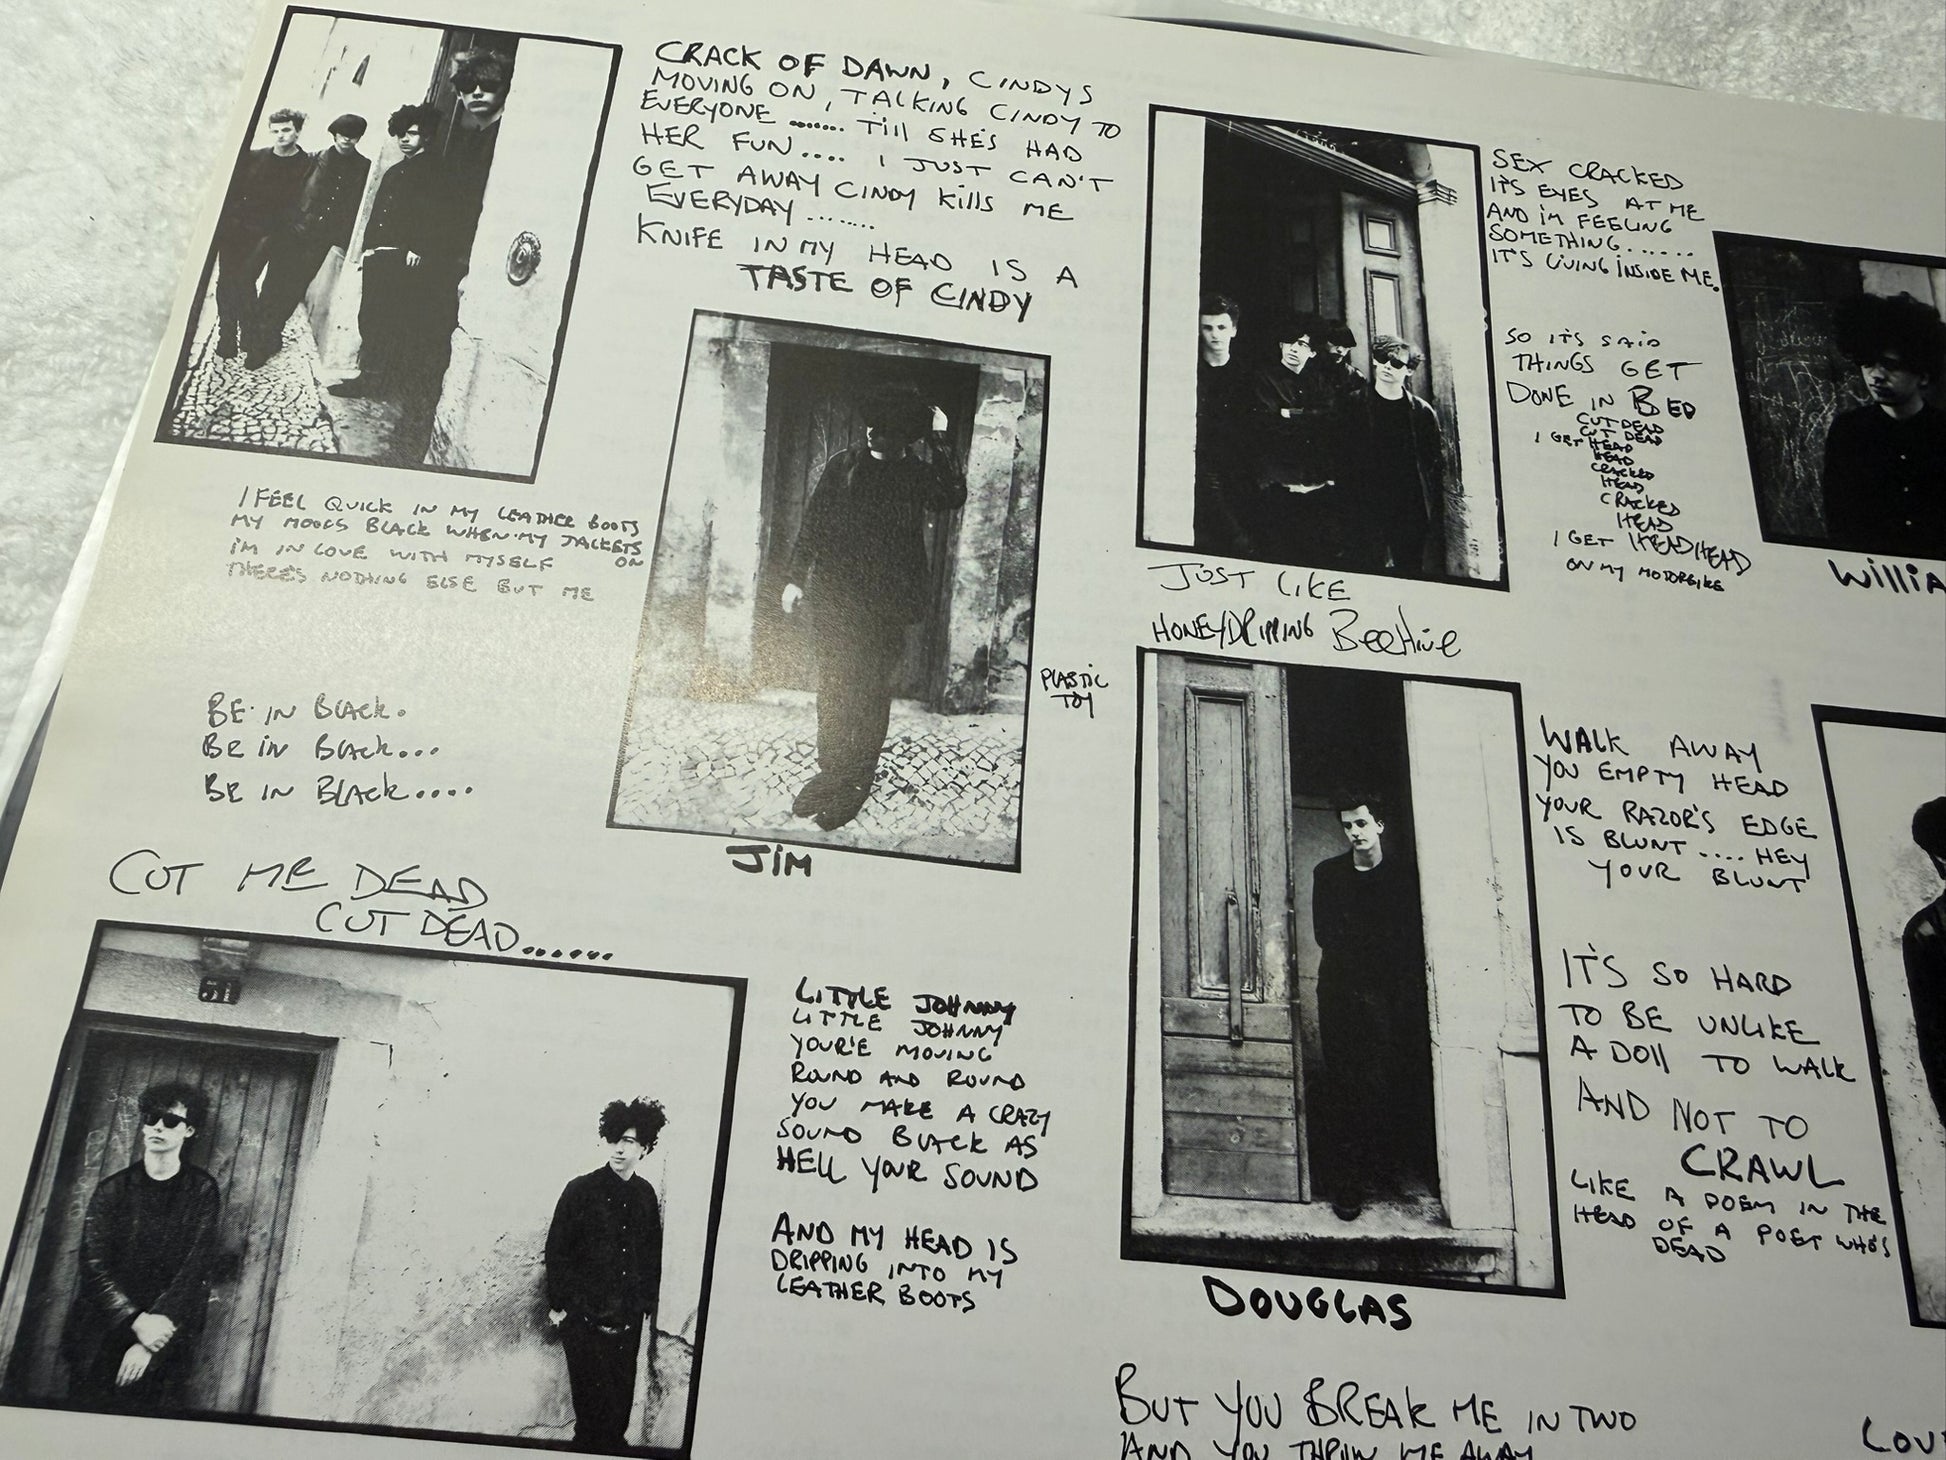 CRACK OF DAWN, CINDYS
MOVING ON, TALKING CINDY TO
EVERYONE ....... Till SHE'S HAD
HER FUN.... I JUST CAN'T
GET AWAY CINDY KillS ME
EVERYDAY ......
KNIFE IN MY HEAD IS A
TASTE OF CINDY
I FEEL QUICK IN MY LEATHER BOOTS
MY MOODS BLACK WHEN MY JACKETS
I'M IN LOVE WITH MYSELF ON
THERE'S NOTHING ELSE BUT ME
BE IN BLACK.
BE IN BLACK...
BE IN BLACK....
JIM
PLASTIC
TOY
CUT ME DEAD
CUT DEAD.......
51
LITTLE JOHNNY
LITTLE JOHNNY
YOUR'E MOVING
ROUND AND ROUND
YOU MAKE A CRAZY
SOUND BLACK AS
HELL YOUR SOUND
AND MY HEAD IS
DRIPPING INTO MY
LEATHER BOOTS
SEX CRACKED
IT'S EYES AT ME
AND I'M FEELING
SOMETHING.......
IT'S LIVING INSIDE ME.
SO IT'S SAID
THINGS GET
DONE IN BED
CUT DEAD
CUT DEAD
I GET HEAD
HEAD
CRACKED
HEAD
CRACKED
HEAD
I GET HEADHEAD
ON MY MOTORBIKE
WIllIA
JUST LIKE
HONEYDRIPPING BEEHIVE
WALK AWAY
YOU EMPTY HEAD
YOUR RAZOR'S EDGE
IS BLUNT .... HEY
YOUR BLUNT
IT'S SO HARD
TO BE UNLIKE
A DOll TO WALK
AND NOT TO
CRAWL
LIKE A POEM IN THE
HEAD OF A POET WHO'S
DEAD
DOUGLAS
BUT YOU BREAK ME IN TWO
AND YOU THROW ME AWAY